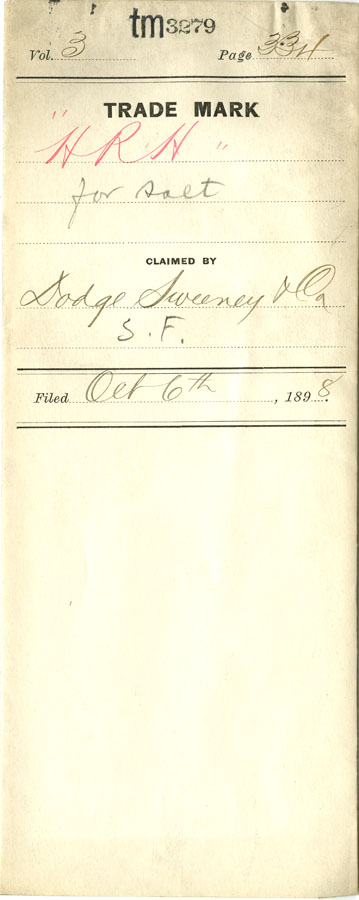 tm3279
Vol. 3 Page 334
TRADE MARK
"HRH"
for salt
CLAIMED BY
Dodge Sweeney & Co
S. F.
Filed Oct 6th, 1898.